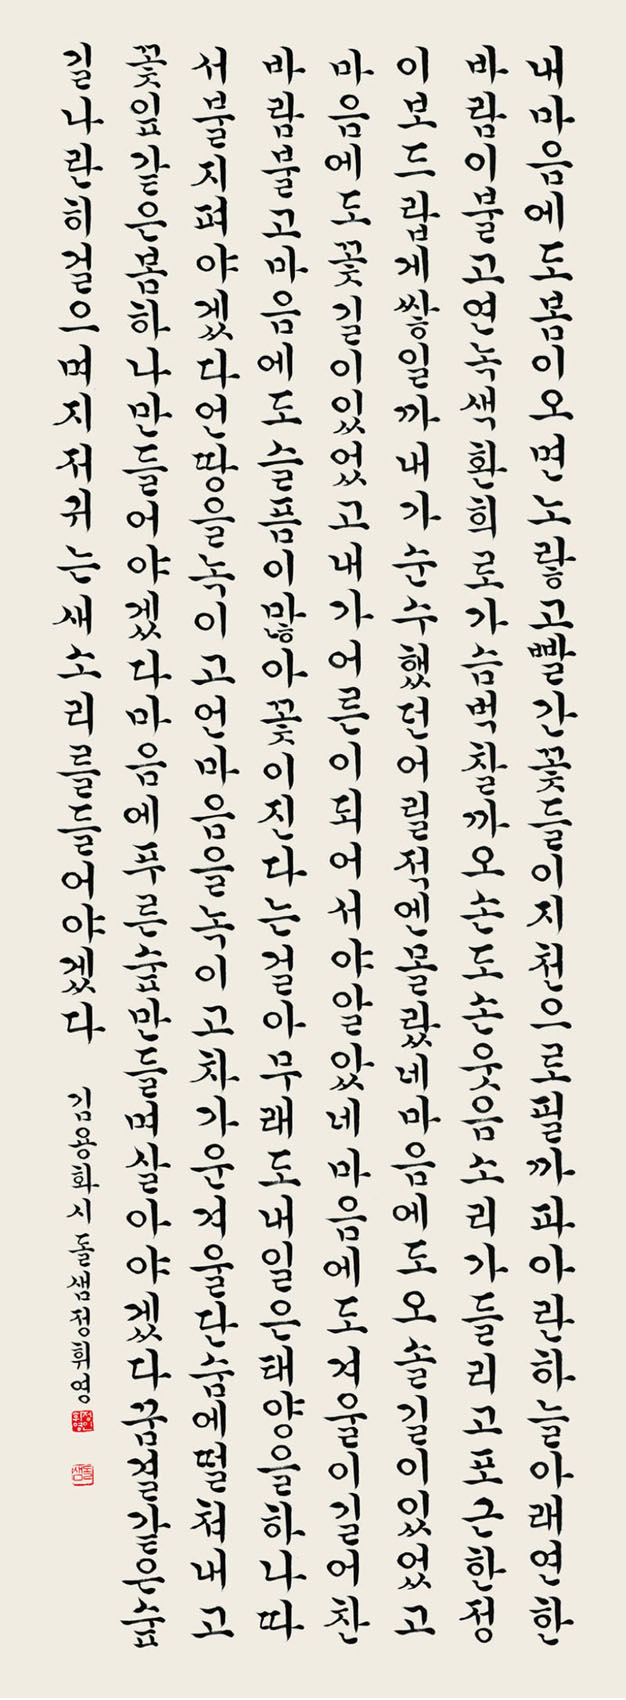 내마음에도봄이오면노랗고빨간꽃들이지천으로필까파아란하늘아래연한
바람이불고연녹색환희로가슴벅찰까오손도손웃음소리가들리고포근한정
이보드랍게쌓일까내가순수했던어릴적엔몰랐네마음에도오솔길이있었고
마음에도꽃길이있었고내가어른이되어서야알았네마음에도겨울이길어찬
바람불고마음에도슬픔이많아꽃이진다는걸아무래도내일은태양을하나따
서불지펴야겠다언땅을녹이고언마음을녹이고차가운겨울단숨에떨쳐내고
꽃잎같은봄하나만들어야겠다마음에푸른숲만들며살아야겠다꿈결같은숲
길나란히걸으며지저귀는새소리를들어야겠다
김용화시돌샘정휘영